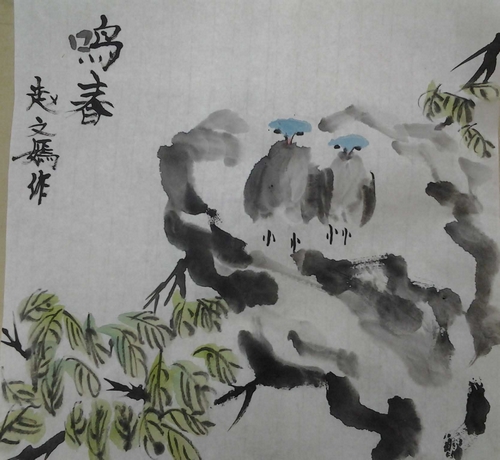 鸣春
赵文嫣作